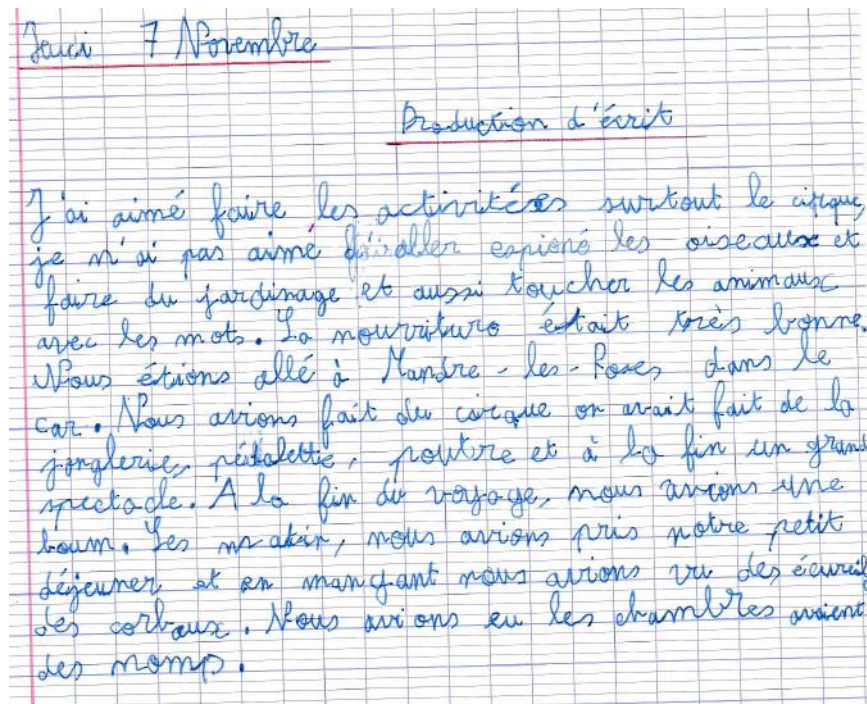 Jeudi 7 Novembre
Production d'écrit
J'ai aimé faire les activitées surtout le cirque,
je n'ai pas aimé aller espioné les oiseaux et
faire du jardinage et aussi toucher les animaux
avec les mots. La nourriture était très bonne.
Nous étions allé à Mandre-les-Roses dans le
car. Nous avions fait du cirque on avait fait de la
jonglerie, pédalette, poutre et à la fin un grand
spectacle. A la fin du voyage, nous avions une
boum. Les matin, nous avions pris notre petit
déjeuner et en mangant nous avions vu des écureil
des corbaux. Nous avions eu les chambres avaient
des nomp.